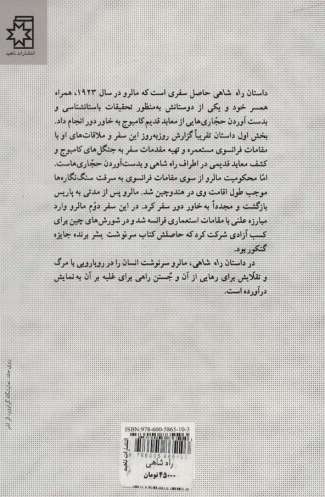 انتشارات ناهید
داستان راه شاهی حاصل سفری است که مالرو در سال ۱۹۲۳، همراه
همسر خود و یکی از دوستانش به‌منظور تحقیقات باستانشناسی و
بدست آوردن حجّاری‌هایی از معابد قدیم کامبوج به خاور دور انجام داد.
بخش اول داستان تقریباً گزارش روزبه‌روز این سفر و ملاقات‌های او با
مقامات فرانسوی مستعمره و تهیه مقدمات سفر به جنگل‌های کامبوج و
کشف معابد قدیمی در اطراف راه شاهی و بدست‌آوردن حجّاری‌هاست.
امّا محکومیت مالرو از سوی مقامات فرانسوی به سرقت سنگ‌نگاره‌ها
موجب طول اقامت وی در هندوچین شد. مالرو پس از مدتی به پاریس
بازگشت و مجدداً به خاور دور سفر کرد. در این سفر دوّم مالرو وارد
مبارزه علنی با مقامات استعماری فرانسه شد و در شورش‌های چین برای
کسب آزادی شرکت کرد که حاصلش کتاب سرنوشت بشر برنده جایزه
گنکور بود.
در داستان راه شاهی، مالرو سرنوشت انسان را در رویارویی با مرگ
و تقلایش برای رهایی از آن و جُستن راهی برای غلبه بر آن به نمایش
درآورده است.
ISBN: 978-600-5865-10-3
راه شاهی
۴۵۰۰۰ تومان